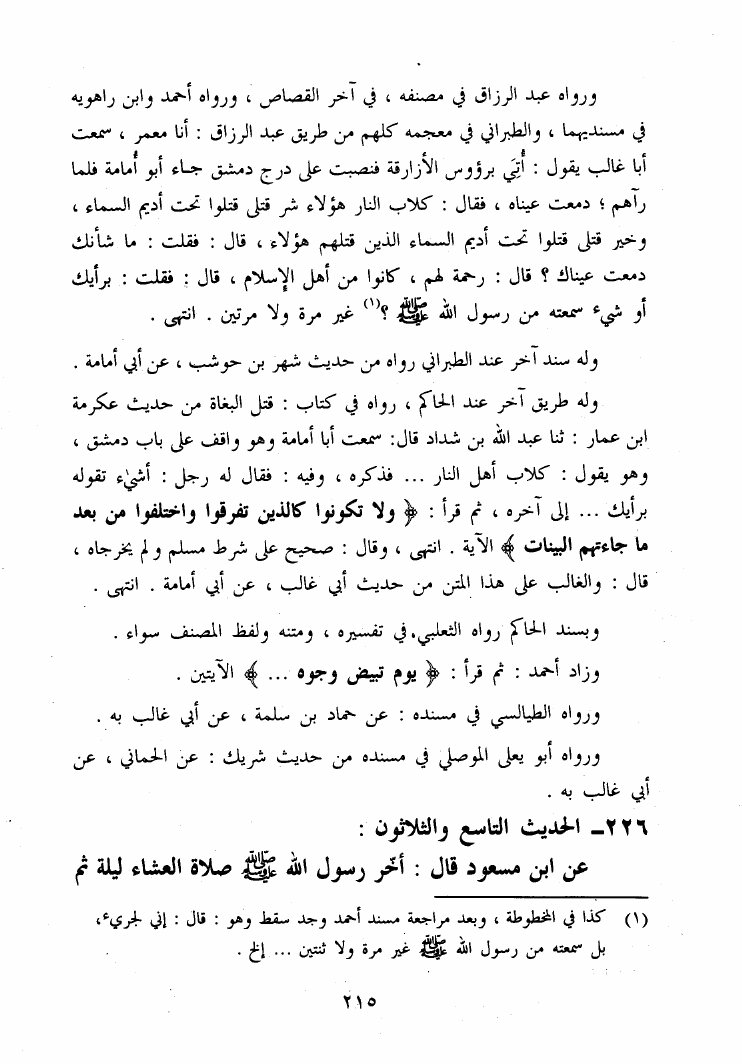 ورواه عبد الرزاق في مصنفه ، في آخر القصاص ، ورواه أحمد وابن راهويه
في مسنديهما ، والطبراني في معجمه كلهم من طريق عبد الرزاق : أنا معمر ، سمعت
أبا غالب يقول : أُتِيَ برؤوس الأزارقة فنصبت على درج دمشق جاء أبو أُمامة فلما
رآهم ؛ دمعت عيناه ، فقال : كلاب النار هؤلاء شر قتلى قتلوا تحت أديم السماء ،
وخير قتلى قتلوا تحت أديم السماء الذين قتلهم هؤلاء ، قال : فقلت : ما شأنك
دمعت عيناك ؟ قال : رحمة لهم ، كانوا من أهل الإسلام ، قال : فقلت : برأيك
أو شيء سمعته من رسول الله ﷺ ؟(١) غير مرة ولا مرتين . انتهى .
وله سند آخر عند الطبراني رواه من حديث شهر بن حوشب ، عن أبي أمامة .
وله طريق آخر عند الحاكم ، رواه في كتاب : قتل البغاة من حديث عكرمة
ابن عمار : ثنا عبد الله بن شداد قال: سمعت أبا أمامة وهو واقف على باب دمشق ،
وهو يقول : كلاب أهل النار ... فذكره ، وفيه : فقال له رجل : أشيء تقوله
برأيك ... إلى آخره ، ثم قرأ : ﴿ ولا تكونوا كالذين تفرقوا واختلفوا من بعد
ما جاءتهم البينات ﴾ الآية . انتهى ، وقال : صحيح على شرط مسلم ولم يخرجاه ،
قال : والغالب على هذا المتن من حديث أبي غالب ، عن أبي أمامة . انتهى .
وبسند الحاكم رواه الثعلبي في تفسيره ، ومتنه ولفظ المصنف سواء .
وزاد أحمد : ثم قرأ : ﴿ يوم تبيض وجوه ... ﴾ الآيتين .
ورواه الطيالسي في مسنده : عن حماد بن سلمة ، عن أبي غالب به .
ورواه أبو يعلى الموصلي في مسنده من حديث شريك : عن الحماني ، عن
أبي غالب به .
٢٢٦ـ الحديث التاسع والثلاثون :
عن ابن مسعود قال : أخّر رسول الله ﷺ صلاة العشاء ليلة ثم
(١) كذا في المخطوطة ، وبعد مراجعة مسند أحمد وجد سقط وهو : قال : إني لجريء،
بل سمعته من رسول الله ﷺ غير مرة ولا ثنتين ... إلخ .
٢١٥